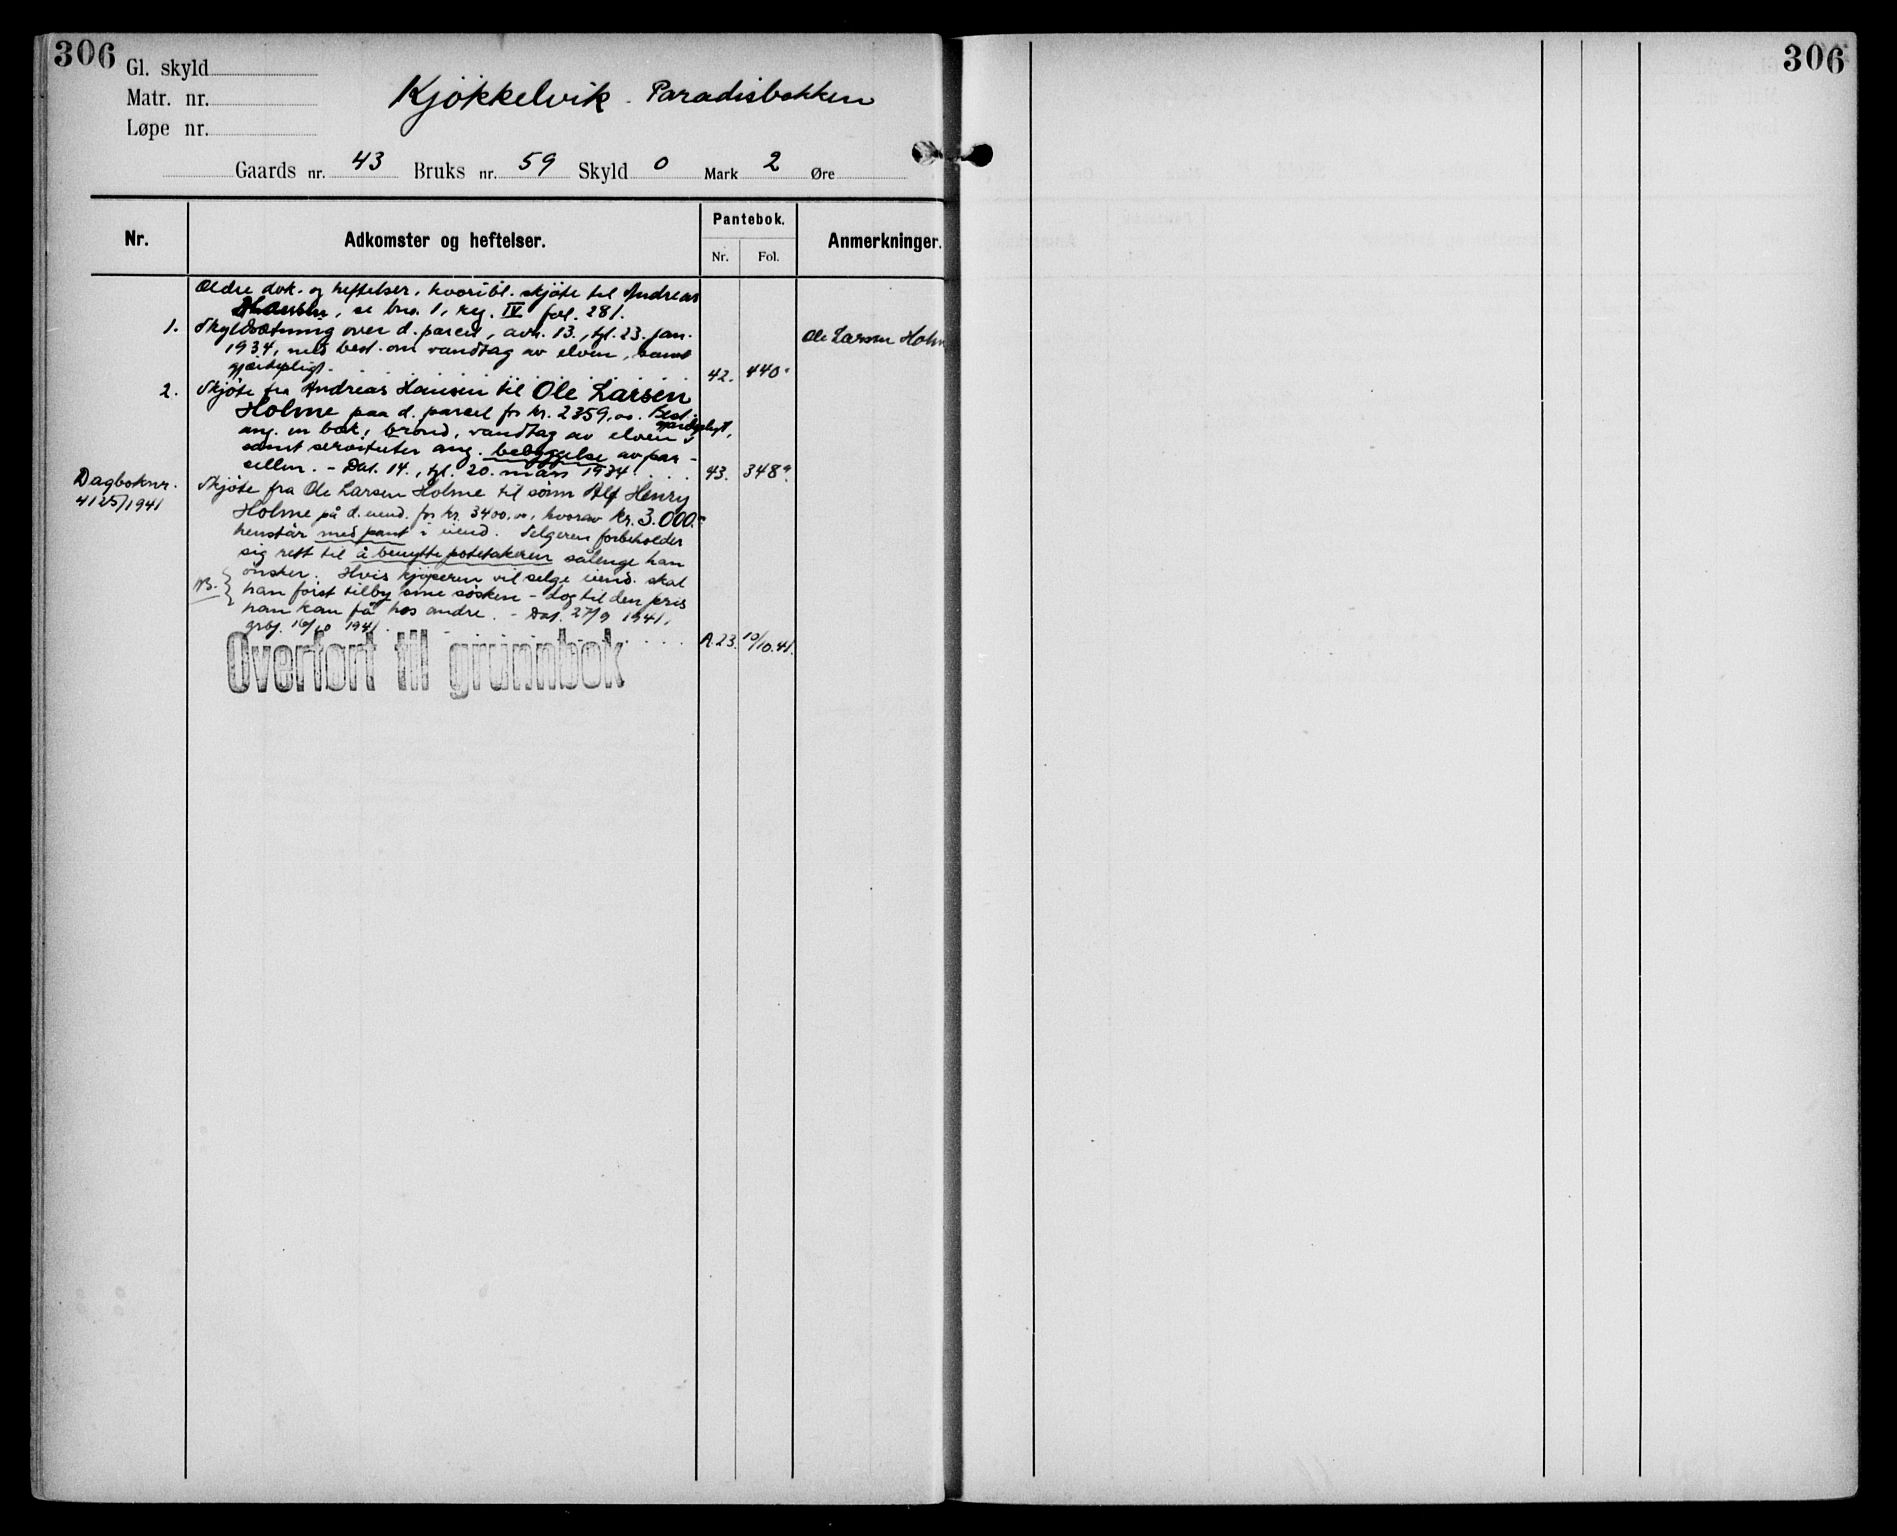 306
306
Gl. skyld
Matr. nr.
Løpe nr.
Kjökkelvik - Paradisbakken
Gaards nr. 43 Bruks nr. 59 Skyld 0 Mark 2 Øre
Nr.
Adkomster og heftelser.
Pantebok.
Nr. Fol.
Anmerkninger.
Ældre dok. og heftelser, hvoribl. skjöte til Andreas
Hansen, se bno. 1, reg. IV fol. 281.
1. Skyldsætning over d. parcel, avh. 13., tgl. 23. jan.
1934, med best. om vandtag av elven, samt
gjerdepligt. 42. 440
Ole Larsen Holm
2. Skjöte fra Andreas Hansen til Ole Larsen
Holme paa d. parcel for kr. 2359,00. Best.
ang. en bæk, brönd, vandtag av elven, gjerdepligt,
samt servituter ang. bebyggelse av par-
cellen. - Dat. 14., tgl. 20. mars 1934. 43. 348
Dagboknr.
4125/1941
Skjöte fra Ole Larsen Holme til sönn Alf Henry
Holme på d. eiend. for kr. 3400,00, hvorav kr. 3.000.-
henstår med pant i eiend. Selgeren forbeholder
sig rett til å benytte potetakeren sålenge han
önsker. Hvis kjöperen vil selge eiend. skal
NB. han först tilby sine sösken - dog til den pris
han kan få hos andre. - Dat. 27/9 1941,
grbf. 10/10 1941. A.23. 10/10.41.
Overført til grunnbok